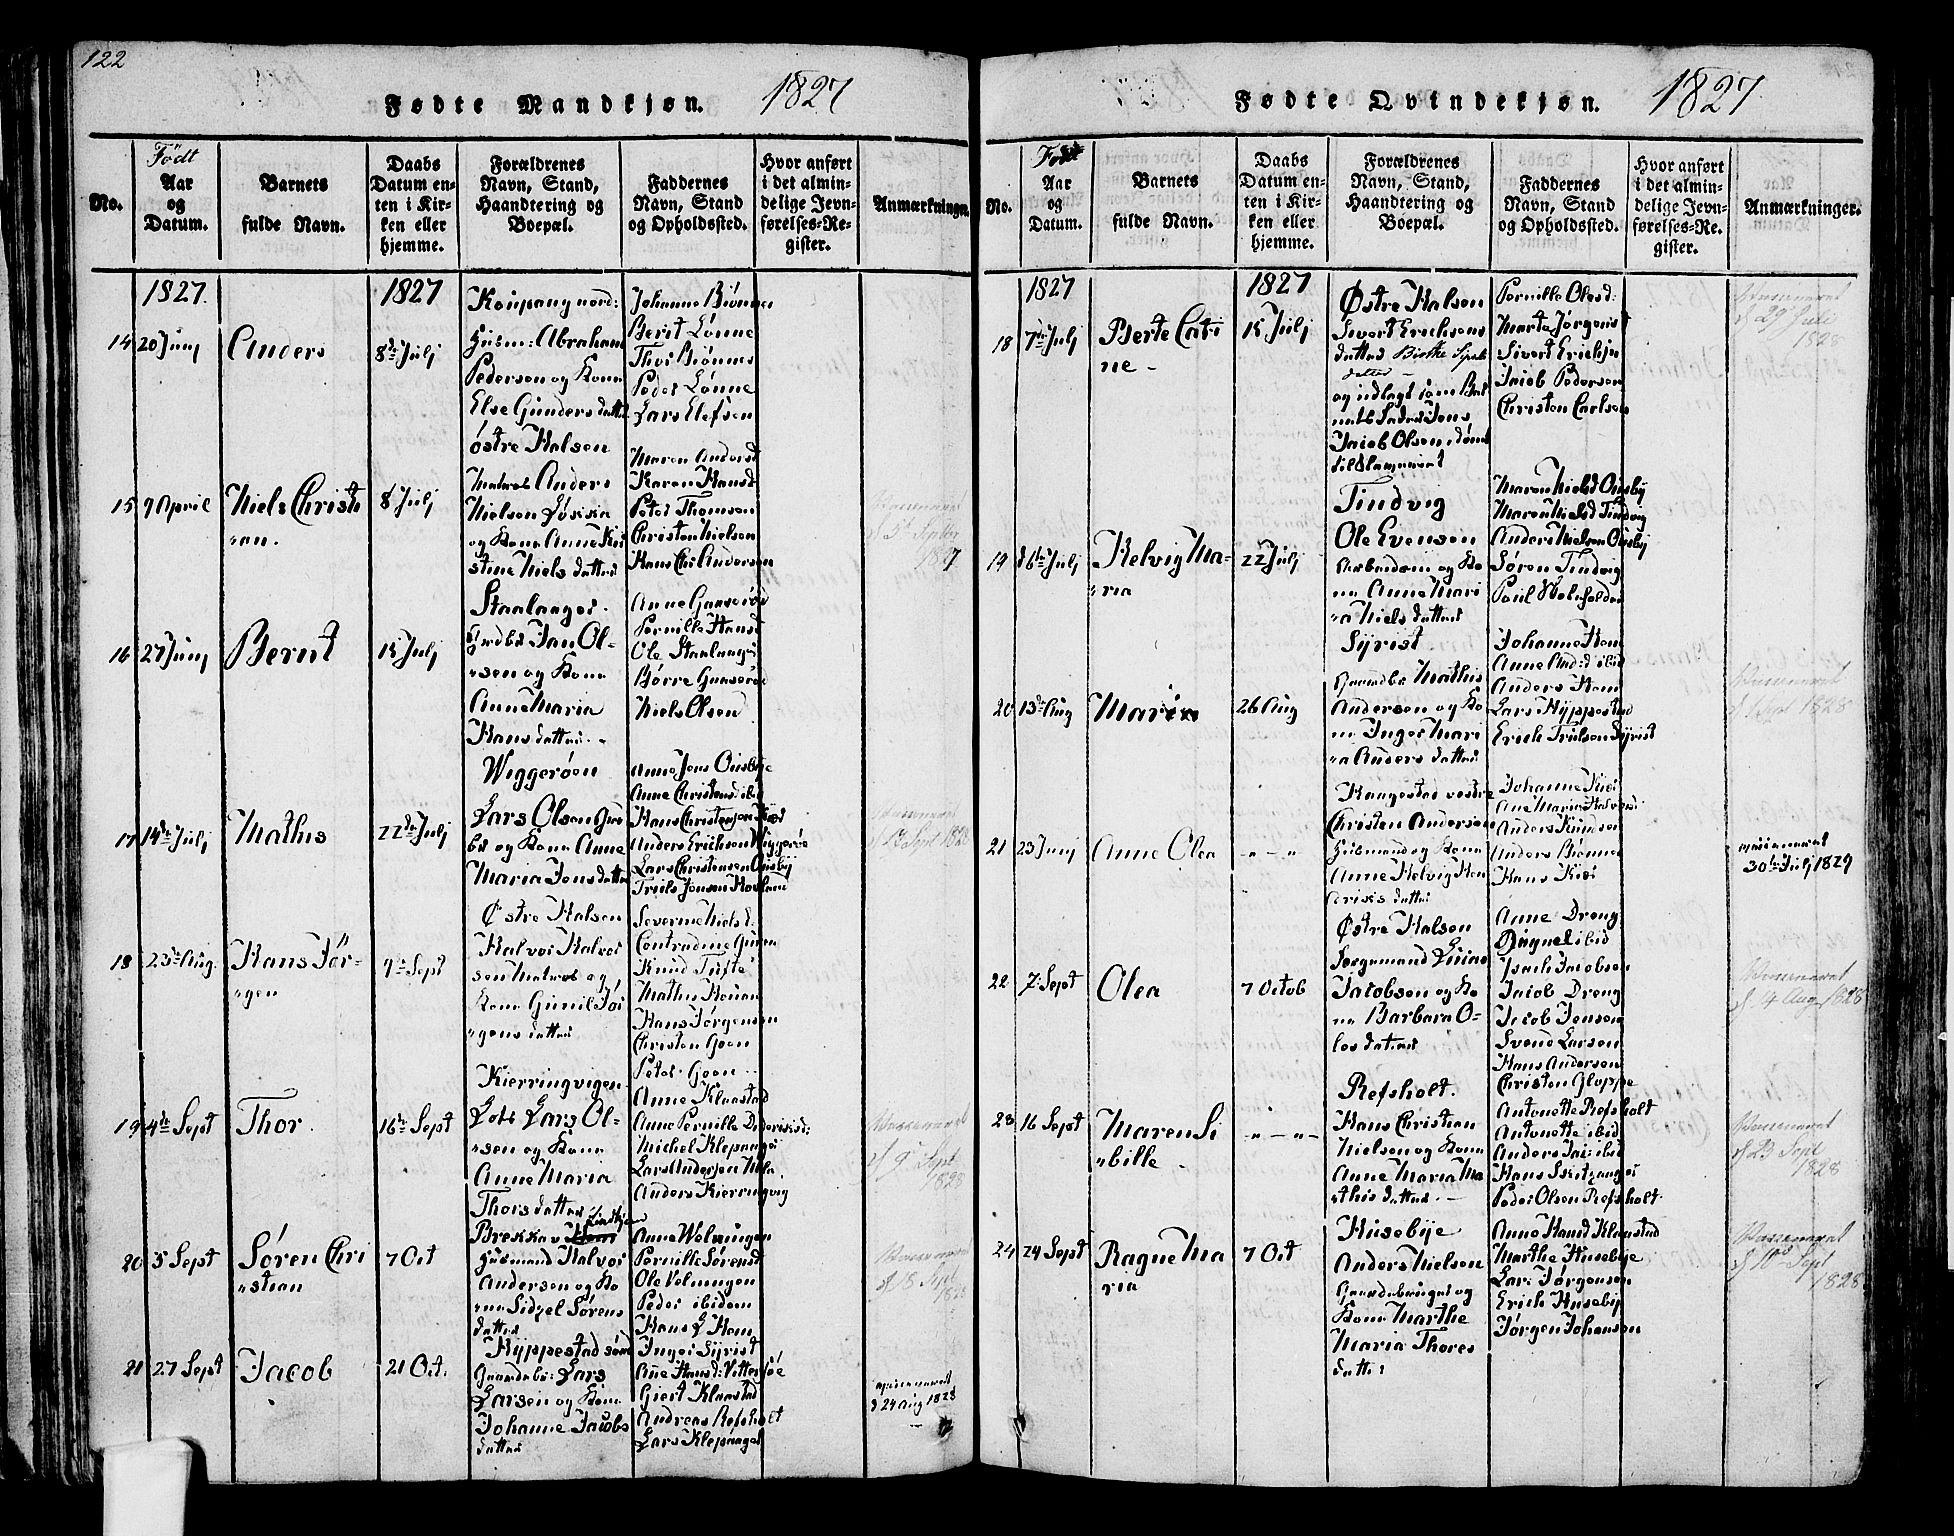 122
Fødte Mandkjøn. 1827
No.
Født
Aar
og
Datum.
Barnets
fulde Navn.
Daabs
Datum en-
ten i Kir-
ken eller
hjemme.
Forældrenes
Navn, Stand,
Haandtering og
Boepæl.
Faddernes
Navn, Stand
og Opholdssted.
Hvor anført
i det almin-
delige Jevn-
førelses-Re-
gister.
Anmærkninger
1827. 1827
14 20 Junj
Anders
8de Julj
Kaupang nord:
Husm: Abraham
Pedersen og Kone
Else Gunders datter
Johanne Biønnes
Berit Lønne
Thor Biønnes
Peder Lønne
Lars Elefsen
15 9 April
Niels Christi
"an.
8 Julj
østre Halsen
Matros Anders
Nielsen
og Kone Anne Kri
stine Niels datter
Maren Andersd
Karen Hansd
Peter Thomsen
Christen Nielsen
Hans Chr Andersen
16 27 Junj
Bernt
15 Julj
Staalanger.
Jan Ol-
"sen og Kone
Anne Maria
Hans datter.
Anne
Pernille Hansd
Ole Staalanger
Børre
Niels Olsen.
17 14de Julj
Mathis
22de Julj
Wiggerøen
Lars Olsen
og Kone Anne
Maria Jensdatter
Anne Jens Ousbye
Anne Christensd ibid
Hans Christensen
Anders Erichsen Wiggerøe
Lars Christensen Ousbÿ
Truls Jensen
13 Sept 1828
18 23de Aug.
Hans Jør-
"gen
9de Sept
Østre Halsen
Halvor Halvor
sen Matros og
Kone Gunild Jør
"gens datter
Severine Niels D.
Contradine
Knud Tufte
Mathis
Hans Jørgensen
Christen Goen
Peder Goen
19 4de Sept
Thor.
16de Sept
Kierringvigen.
Lods Lars Ol-
"sen og Kone
Anne Maria
Thors datter
Anne Klaastad
Anne Pernille Dideriksd:
Michel Klepaager
Lars Andersen
Anders Kierringvig
Vaccineret
d 9 Sept
1828
20 5 Sept
Søren Chri
"stian
7 Oct
Husmand Halvor
Andersen og Ko
"ne Sidzel Sørens
datter
Anne Wolningen
Pernille Sørensd
Ole Volningen
Peder ibidem
Hans
Vaccineret
d 18 Sept
1828
21 27 Sept
Jacob
21 Oct.
Hÿppestad sønd
Gaardbr: Lars
Larsen og Kone
Johanne Jacobs
datter
Inger Sÿrist
Ane Hansd:
Giert Klaastad
Andreas Refsholt
Lars Klepaager
vaccineret
d 24 Aug 1828
Fødte Qvindekjøn. 1827.
No.
Født
Aar
og
Datum.
Barnets
fulde Navn.
Daabs
Datum en-
ten i Kir-
ken eller
hjemme.
Forældrenes
Navn, Stand,
Haandtering og
Boepæl.
Faddernes
Navn, Stand
og Opholdssted.
Hvor anført
i det almin-
delige Jevn-
førelses-Re-
gister.
Anmærkninger.
1827 1827
18 7de Julj
Berte Catri
ne -
15 Julj
Østre Halsen
Sivert Erichsens
datter
og udlagt som Bar
nets Fader
Jacob Olsen
Pernille Olesd:
Marta Jørgensd
Sivert Erichsen
Jacob Pedersen
Christen Carlsen
Vaccineret
d 29 Juli
1828
19
Helvig Ma-
"ria
22 Julj
Tindvig
Ole Evensen
Arbeidsm og Ko
ne Anne Mari
"a Niels datter
Maren Nielsd Ousbÿ
Maren Nielsd Tindvig
Anders Nielsen Ousbÿ
Søren Tindvig
Poul
20 13de Aug
Marie
26 Aug
Sÿrist
Gaardbr Mathis
Andersen og Ko
ne Inger Mari
"a Anders datter
Johanne Hem
Anne And:d ibid
Anders Hem
Lars Hÿppestad
Erich Trulsen Sÿrist
Vaccineret
Sept 1828
21 23 Junj
Anne Olea
" - "
Kaupestad vestre
Christen Andersen
Husmand og Kone
Anne Helvig Hen
driks datter
Johanne
Ane Maria Halvorsd
Anders Knudsen
Anders Biønnes
Hans
vaccineret
30de Julj 1829
22 7 Sept
Olea
7 Octob
Østre Halsen
Jacobsen og Ko
ne Barbara O-
les datter
Anne Dreng
Isach Jacobsen
Jacob Dreng
Jacob Jensen
Svend Larsen
Hans Andersen
Christen Gloppe
Vaccineret
d 14 Aug 1828
23 16 Sept
Maren Si
"bille.
" - " - "
Refsholt.
Hans Christian
Nielsen og Kone
Anne Maria Ma
"this datter. -
Antonette Refsholt
Antonette ibid
Anders ibid
Hans
Peder Olsen Refsholt.
Vaccineret
d 23 Sept
1828
24 24 Sept
Ragne Ma
ria
7 Oct
Husebÿe
Anders Nielsen
Gaardebruger og
Kone Marthe
Maria Thores
datter
Anne Hansd Klaastad
Marthe Husebÿe
Lars Jørgensen
Erich Husebÿ
Jørgen Johansen
Vaccineret
Sept
1828